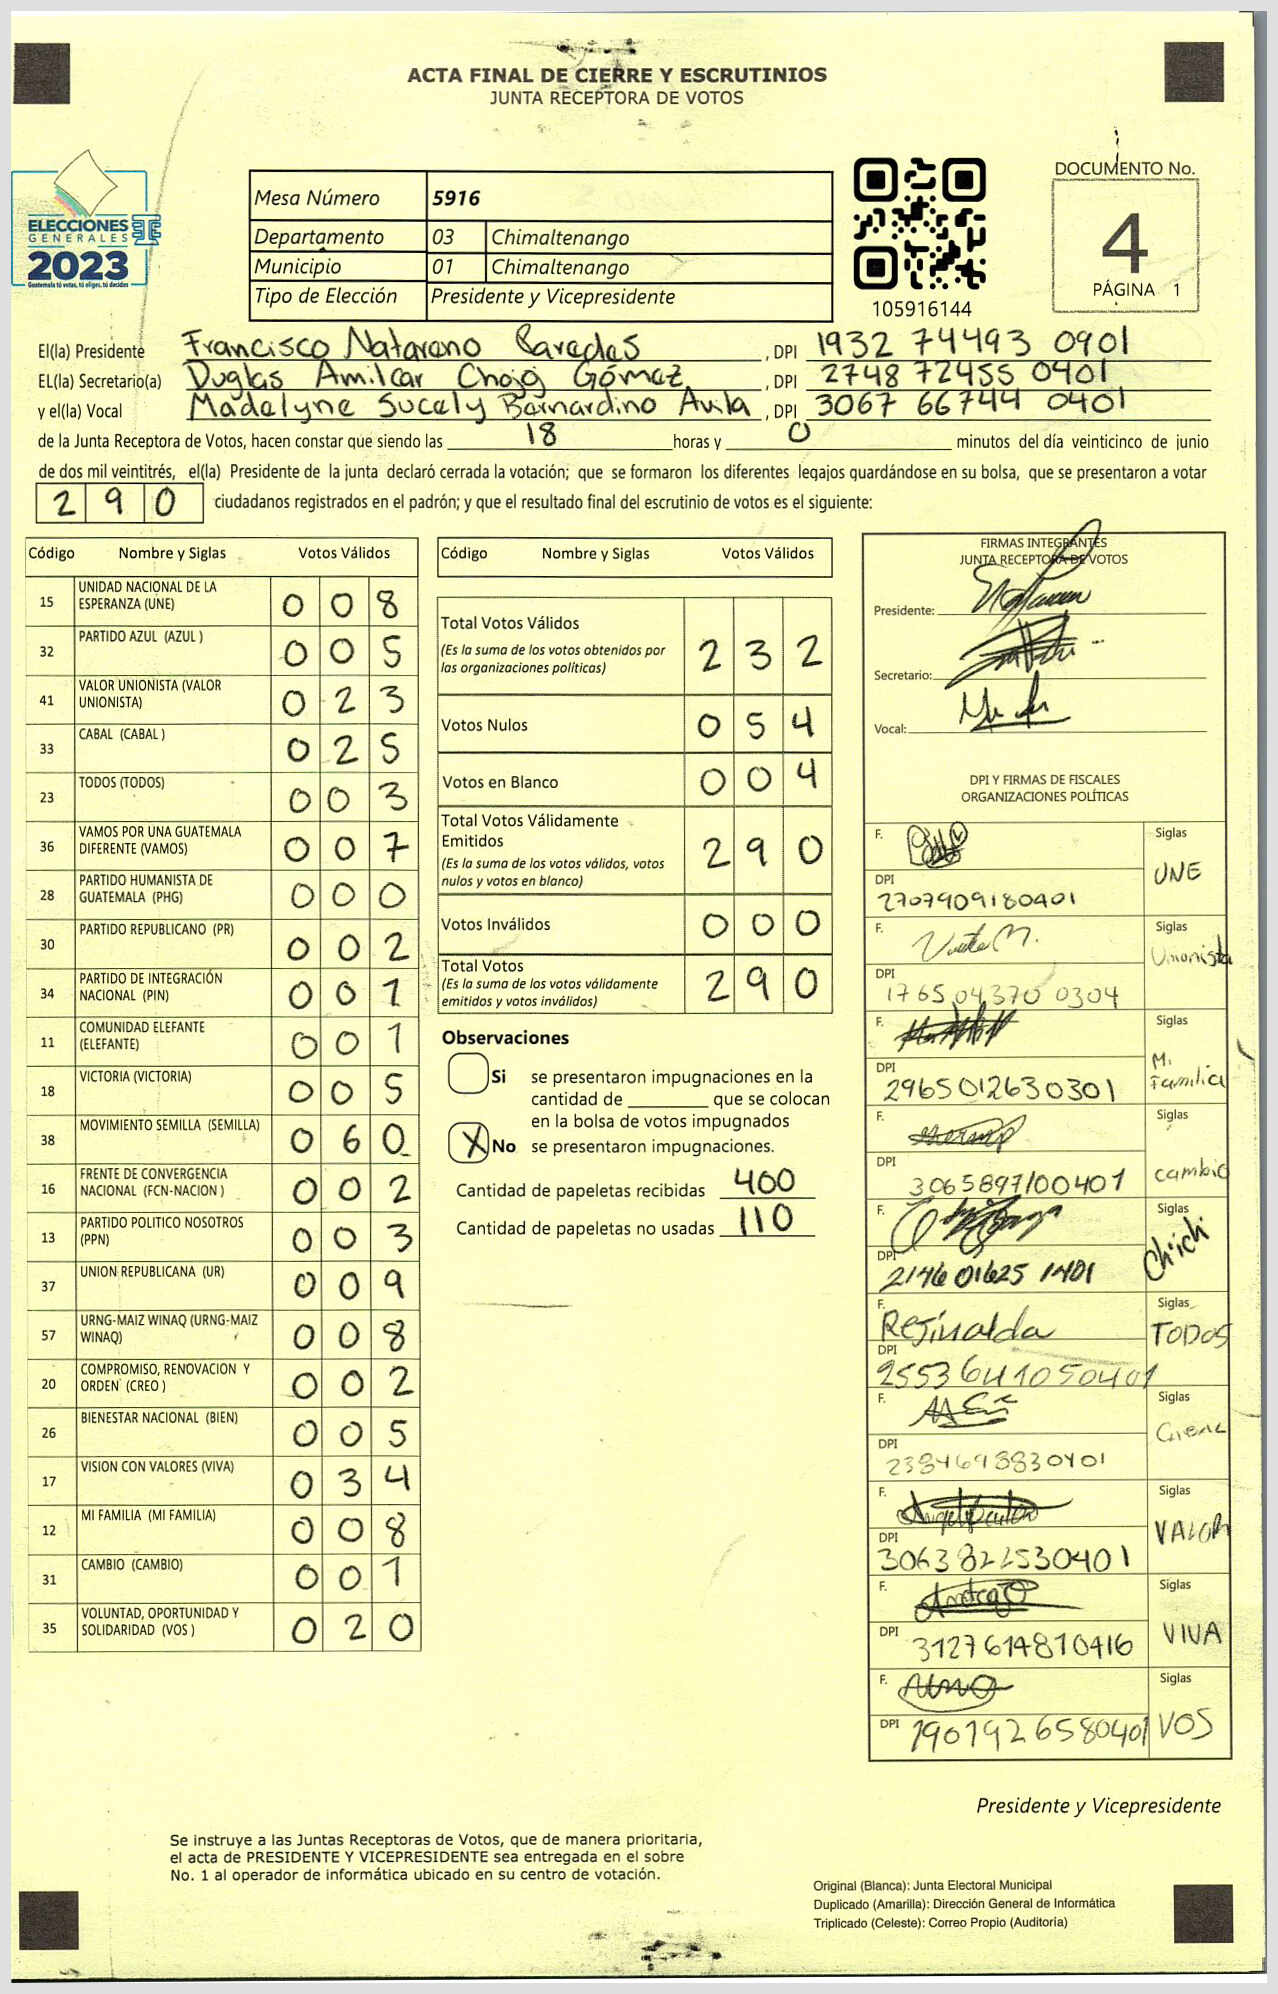 ACTA FINAL DE CIERRE Y ESCRUTINIOS
JUNTA RECEPTORA DE VOTOS
ELECCIONES
GENERALES
2023
Guatemala tú votas, tú eliges, tú decides
Mesa Número 5916
Departamento 03 Chimaltenango
Municipio 01 Chimaltenango
Tipo de Elección Presidente y Vicepresidente
105916144
DOCUMENTO No.
4
PÁGINA 1
El(la) Presidente Francisco Natareno Paredes, DPI 1932 74493 0901
EL(la) Secretario(a) Duglas Amilcar Chojoj Gómez, DPI 2748 72455 0401
y el(la) Vocal Madelyne Sucely Bernardino Avila, DPI 3067 66744 0401
de la Junta Receptora de Votos, hacen constar que siendo las 18 horas y 0 minutos del día veinticinco de junio
de dos mil veintitrés, el(la) Presidente de la junta declaró cerrada la votación; que se formaron los diferentes legajos guardándose en su bolsa, que se presentaron a votar
290 ciudadanos registrados en el padrón; y que el resultado final del escrutinio de votos es el siguiente:
Código Nombre y Siglas Votos Válidos
15 UNIDAD NACIONAL DE LA ESPERANZA (UNE) 008
32 PARTIDO AZUL (AZUL ) 005
41 VALOR UNIONISTA (VALOR UNIONISTA) 023
33 CABAL (CABAL ) 025
23 TODOS (TODOS) 003
36 VAMOS POR UNA GUATEMALA DIFERENTE (VAMOS) 007
28 PARTIDO HUMANISTA DE GUATEMALA (PHG) 000
30 PARTIDO REPUBLICANO (PR) 002
34 PARTIDO DE INTEGRACIÓN NACIONAL (PIN) 001
11 COMUNIDAD ELEFANTE (ELEFANTE) 001
18 VICTORIA (VICTORIA) 005
38 MOVIMIENTO SEMILLA (SEMILLA) 060
16 FRENTE DE CONVERGENCIA NACIONAL (FCN-NACION ) 002
13 PARTIDO POLITICO NOSOTROS (PPN) 003
37 UNION REPUBLICANA (UR) 009
57 URNG-MAIZ WINAQ (URNG-MAIZ WINAQ) 008
20 COMPROMISO, RENOVACION Y ORDEN (CREO ) 002
26 BIENESTAR NACIONAL (BIEN) 005
17 VISION CON VALORES (VIVA) 034
12 MI FAMILIA (MI FAMILIA) 008
31 CAMBIO (CAMBIO) 001
35 VOLUNTAD, OPORTUNIDAD Y SOLIDARIDAD (VOS ) 020
Código Nombre y Siglas Votos Válidos
Total Votos Válidos 232
(Es la suma de los votos obtenidos por
las organizaciones políticas)
Votos Nulos 054
Votos en Blanco 004
Total Votos Válidamente
Emitidos 290
(Es la suma de los votos válidos, votos
nulos y votos en blanco)
Votos Inválidos 000
Total Votos 290
(Es la suma de los votos válidamente
emitidos y votos inválidos)
Observaciones
Si se presentaron impugnaciones en la
cantidad de ________ que se colocan
en la bolsa de votos impugnados
X No se presentaron impugnaciones.
Cantidad de papeletas recibidas 400
Cantidad de papeletas no usadas 110
FIRMAS INTEGRANTES
JUNTA RECEPTORA DE VOTOS
Presidente:
Secretario:
Vocal:
DPI Y FIRMAS DE FISCALES
ORGANIZACIONES POLÍTICAS
F. Siglas
UNE
DPI 2707909180401
F. Siglas
Unionista
DPI 1765 04370 0304
F. Siglas
M. Familia
DPI 2965012630301
F. Siglas
cambio
DPI 3065897100401
F. Siglas
DPI 2146 01625 1401
F. Rejinalda Siglas
TODOS
DPI 2553641050401
F. Siglas
DPI 2384698830401
F. Siglas
VALOR
DPI 3063822530401
F. Siglas
VIVA
DPI 3127614810416
F. Siglas
VOS
DPI 1901926580401
Presidente y Vicepresidente
Se instruye a las Juntas Receptoras de Votos, que de manera prioritaria,
el acta de PRESIDENTE Y VICEPRESIDENTE sea entregada en el sobre
No. 1 al operador de informática ubicado en su centro de votación.
Original (Blanca): Junta Electoral Municipal
Duplicado (Amarilla): Dirección General de Informática
Triplicado (Celeste): Correo Propio (Auditoría)